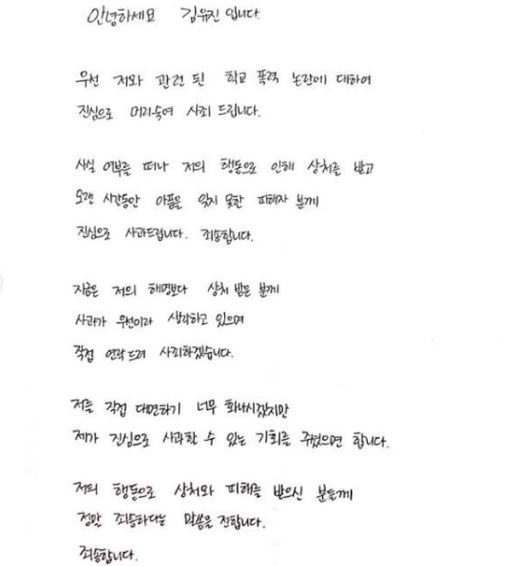 안녕하세요 김유진 입니다.
우선 저와 관련 된 학교 폭력 논란에 대하여
진심으로 머리숙여 사죄 드립니다.
사실 여부를 떠나 저의 행동으로 인해 상처를 받고
오랜 시간동안 아픔을 잊지 못한 피해자 분께
진심으로 사과드립니다. 죄송합니다.
지금은 저의 해명보다 상처 받은 분께
사과가 우선이라 생각하고 있으며
직접 연락드려 사죄하겠습니다.
저를 직접 대면하기 너무 화나시겠지만
제가 진심으로 사과할 수 있는 기회를 주셨으면 합니다.
저의 행동으로 상처와 피해를 받으신 분들께
정말 죄송하다는 말씀을 전합니다.
죄송합니다.